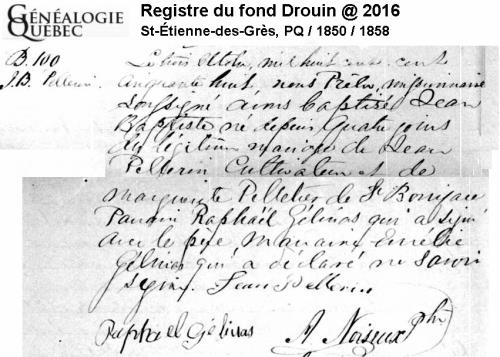 GÉNÉALOGIE
QUÉBEC
Registre du fond Drouin @ 2016
St-Étienne-des-Grès, PQ / 1850 / 1858
B. 100
J.B. Pellerin
Le trois Octobre, mil huit cent
cinquante huit, nous Prêtre, missionnaire
soussigné avons baptisé Jean
Baptiste né depuis quatre jours
du légitime mariage de Jean
Pellerin Cultivateur et de
marguerite Pelletier de St Boniface
Parrain Raphaël Gélinas qui a signé
avec le père Marraine Emélie
Gélinas qui a déclaré ne savoir
signer. Jean Pellerin
Raphael Gélinas
A Noiseux Ptre